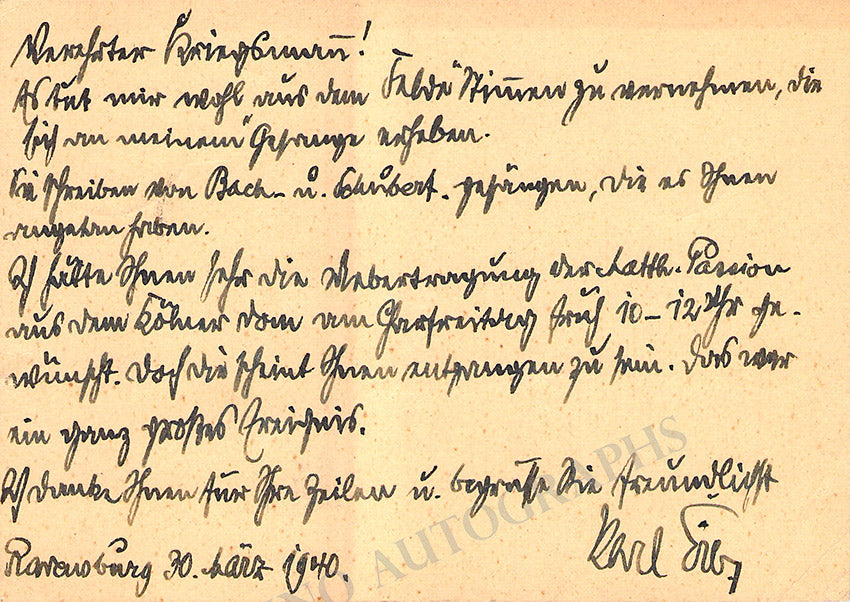 Verehrter Kriegsmann!
Es tut mir wohl aus dem "Felde" Stimmen zu vernehmen, die
sich an meinem Gesange erheben.
Sie schreiben von Bach- u. Schubert-gesängen, die es Ihnen
angetan haben.
Ich hätte Ihnen sehr die Uebertragung der Matth.-Passion
aus dem Kölner Dom am Charfreitag früh 10-12 Uhr ge-
wünscht. Doch die scheint Ihnen entgangen zu sein. Das war
ein ganz großes Ereignis.
Ich danke Ihnen für Ihre Zeilen u. begrüsse Sie freundlichst
Karl Erb
Ravensburg 30. März 1940.
AUTOGRAPHS